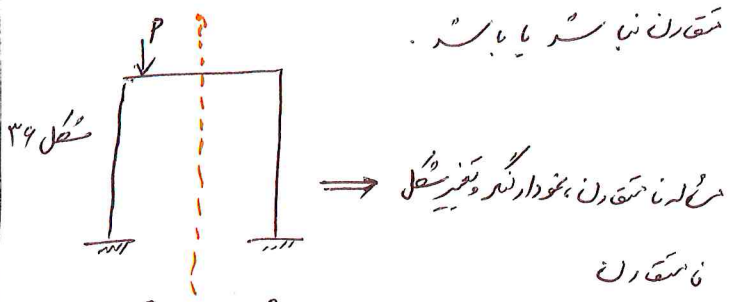 متقارن نباشد یا باشد.
P
شکل ۳۶
⇒ مسئله نامتقارن، نمودار لنگر و تغییر شکل
نامتقارن